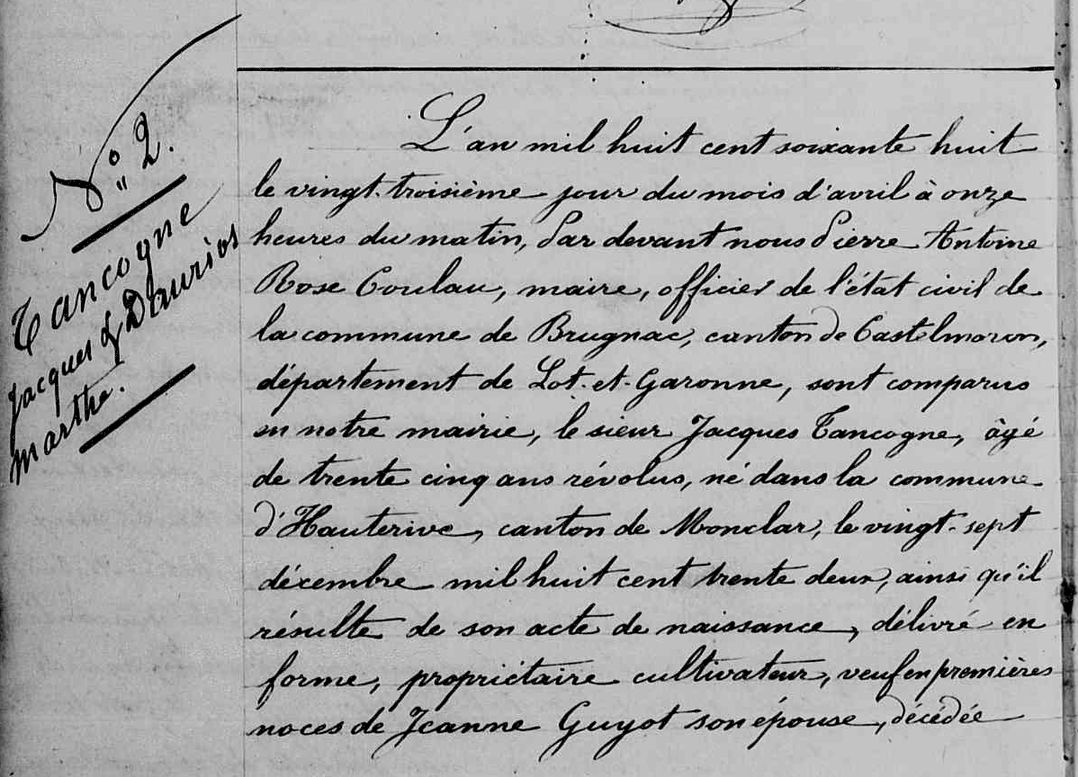 N° 2.
Tancogne
Jacques & Daurios
marthe.
L'an mil huit cent soixante huit
le vingt-troisième jour du mois d'avril à onze
heures du matin, Par devant nous Pierre Antoine
Rose Coulau, maire, officier de l'état civil de
la commune de Brugnac, canton de Castelmoron,
département de Lot-et-Garonne, sont comparus
en notre mairie, le sieur Jacques Tancogne, âgé
de trente cinq ans révolus, né dans la commune
d'Hauterive, canton de Monclar, le vingt-sept
décembre mil huit cent trente deux, ainsi qu'il
résulte de son acte de naissance, délivré en
forme, propriétaire cultivateur, veuf en premières
noces de Jeanne Guyot son épouse, décédée